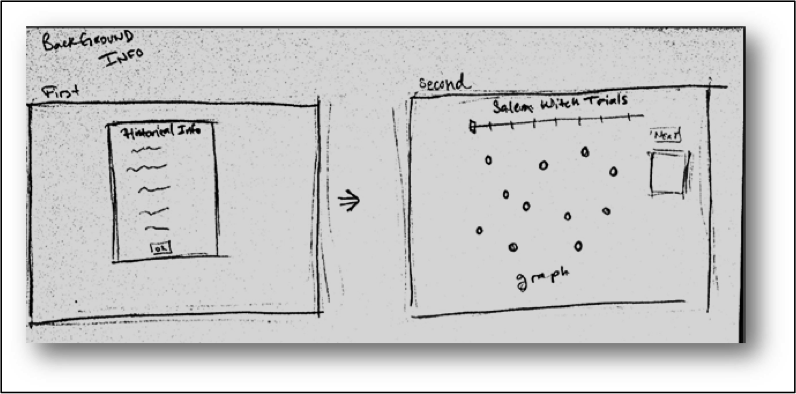 BACKGROUND
INFO
First
Historical Info
OK
Second
Salem Witch Trials
Next
graph